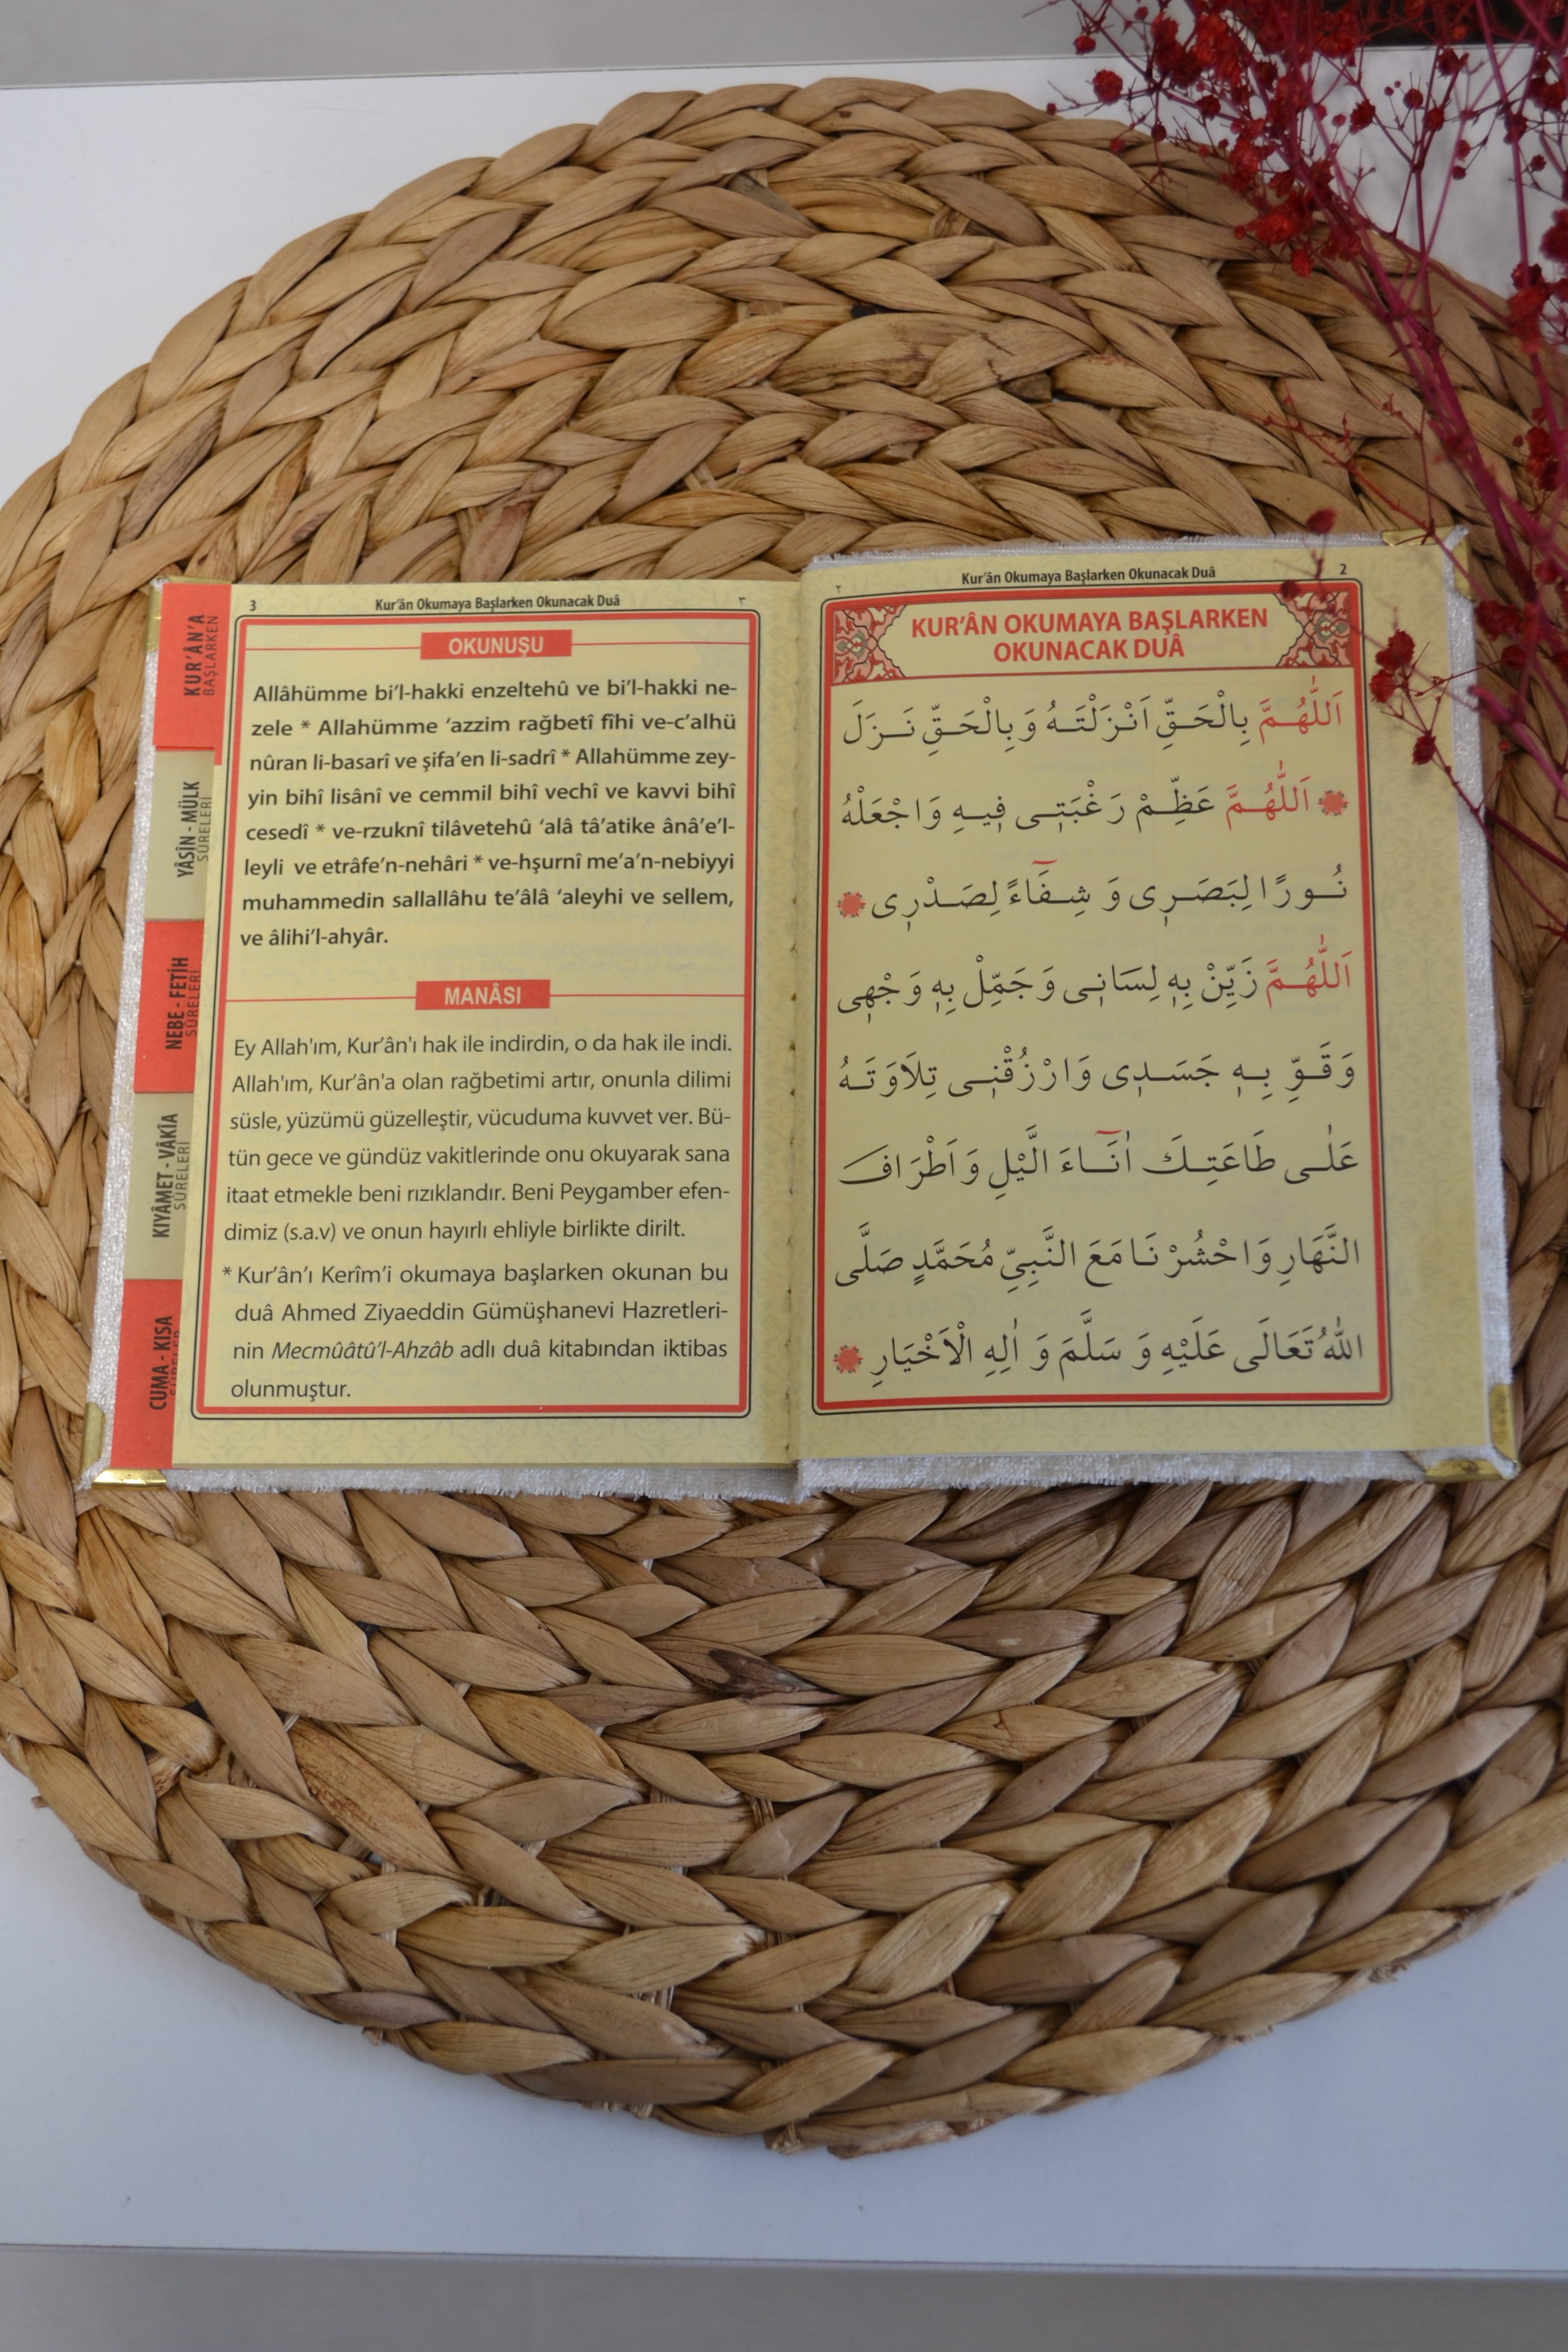 Kur'ân Okumaya Başlarken Okunacak Duâ
2
٢
KUR'ÂN OKUMAYA BAŞLARKEN
OKUNACAK DUÂ
اَللّٰهُمَّ بِالْحَقِّ اَنْزَلْتَهُ وَ بِالْحَقِّ نَزَلَ
اَللّٰهُمَّ عَظِّمْ رَغْبَتِى فِيهِ وَاجْعَلْهُ
نُورًا لِبَصَرِى وَ شِفَٓاءً لِصَدْرِى
اَللّٰهُمَّ زَيِّنْ بِهِ لِسَانِى وَجَمِّلْ بِهِ وَجْهِى
وَقَوِّ بِهِ جَسَدِى وَارْزُقْنِى تِلَاوَتَهُ
عَلٰى طَاعَتِكَ اٰنَٓاءَ الَّيْلِ وَاَطْرَافَ
النَّهَارِ وَاحْشُرْنَا مَعَ النَّبِيِّ مُحَمَّدٍ صَلَّى
اللّٰهُ تَعَالَى عَلَيْهِ وَ سَلَّمَ وَ اٰلِهِ الْاَخْيَارِ
3
Kur'ân Okumaya Başlarken Okunacak Duâ
٣
OKUNUŞU
Allâhümme bi'l-hakki enzeltehû ve bi'l-hakki ne-
zele * Allahümme 'azzim rağbetî fîhi ve-c'alhü
nûran li-basarî ve şifa'en li-sadrî * Allahümme zey-
yin bihî lisânî ve cemmil bihî vechî ve kavvi bihî
cesedî * ve-rzuknî tilâvetehû 'alâ tâ'atike ânâ'e'l-
leyli ve etrâfe'n-nehâri * ve-hşurnî me'a'n-nebiyyi
muhammedin sallallâhu te'âlâ 'aleyhi ve sellem,
ve âlihi'l-ahyâr.
MANÂSI
Ey Allah'ım, Kur'ân'ı hak ile indirdin, o da hak ile indi.
Allah'ım, Kur'ân'a olan rağbetimi artır, onunla dilimi
süsle, yüzümü güzelleştir, vücuduma kuvvet ver. Bü-
tün gece ve gündüz vakitlerinde onu okuyarak sana
itaat etmekle beni rızıklandır. Beni Peygamber efen-
dimiz (s.a.v) ve onun hayırlı ehliyle birlikte dirilt.
* Kur'ân'ı Kerîm'i okumaya başlarken okunan bu
duâ Ahmed Ziyaeddin Gümüşhanevi Hazretleri-
nin Mecmûâtû'l-Ahzâb adlı duâ kitabından iktibas
olunmuştur.
KUR'ÂN'A
BAŞLARKEN
YÂSÎN - MÜLK
SÛRELERİ
NEBE - FETİH
SÛRELERİ
KIYÂMET - VÂKIA
SÛRELERİ
CUMA - KISA
SÛRELER